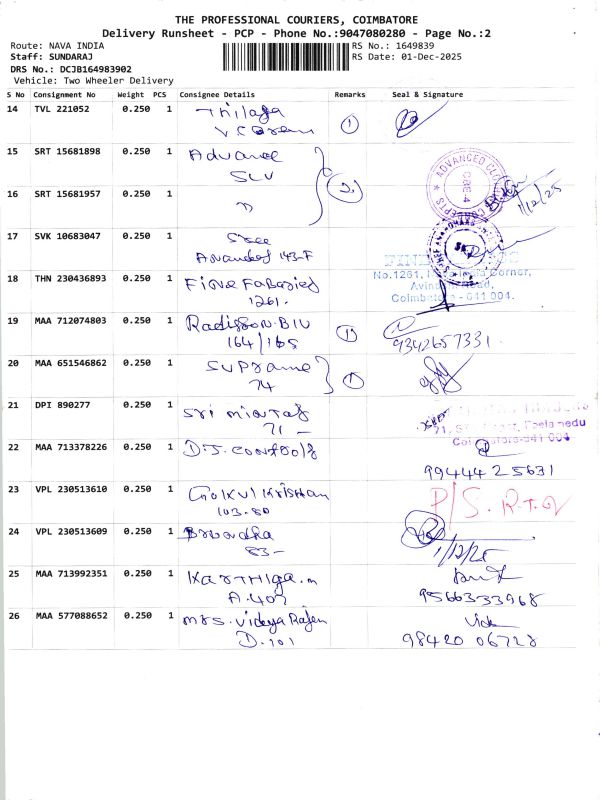 THE PROFESSIONAL COURIERS, COIMBATORE
Delivery Runsheet - PCP - Phone No.:9047080280 - Page No.:2
Route: NAVA INDIA
RS No.: 1649839
Staff: SUNDARAJ
RS Date: 01-Dec-2025
DRS No.: DCJB164983902
Vehicle: Two Wheeler Delivery
S No Consignment No Weight PCS Consignee Details Remarks Seal & Signature
14 TVL 221052 0.250 1 Thilaga
1
15 SRT 15681898 0.250 1 Advance
SLV
2
ADVANCED CONCEPTS
CBE-4
1/12/25
16 SRT 15681957 0.250 1 "
17 SVK 10683047 0.250 1 Sree
143-F
18 THN 230436893 0.250 1 Fine
1261.
No.1261, Corner,
Avinashi Road,
Coimbatore - 641 004.
19 MAA 712074803 0.250 1 Radisson. BIU
164/165
1
9342657331
20 MAA 651546862 0.250 1 Supreme
74
1
21 DPI 890277 0.250 1 Sri
71 -
71, Peelamedu
Coimbatore-641 004
22 MAA 713378226 0.250 1 D.J. Controls
99444 25631
23 VPL 230513610 0.250 1 Gokul Krishnan
103.80
P/S. R.T.O
24 VPL 230513609 0.250 1 Brundha
83-
1/12/25
25 MAA 713992351 0.250 1 Karthiga.m
A.407
9566333968
26 MAA 577088652 0.250 1 mrs. Vidya Rajen
D.101
98420 06728